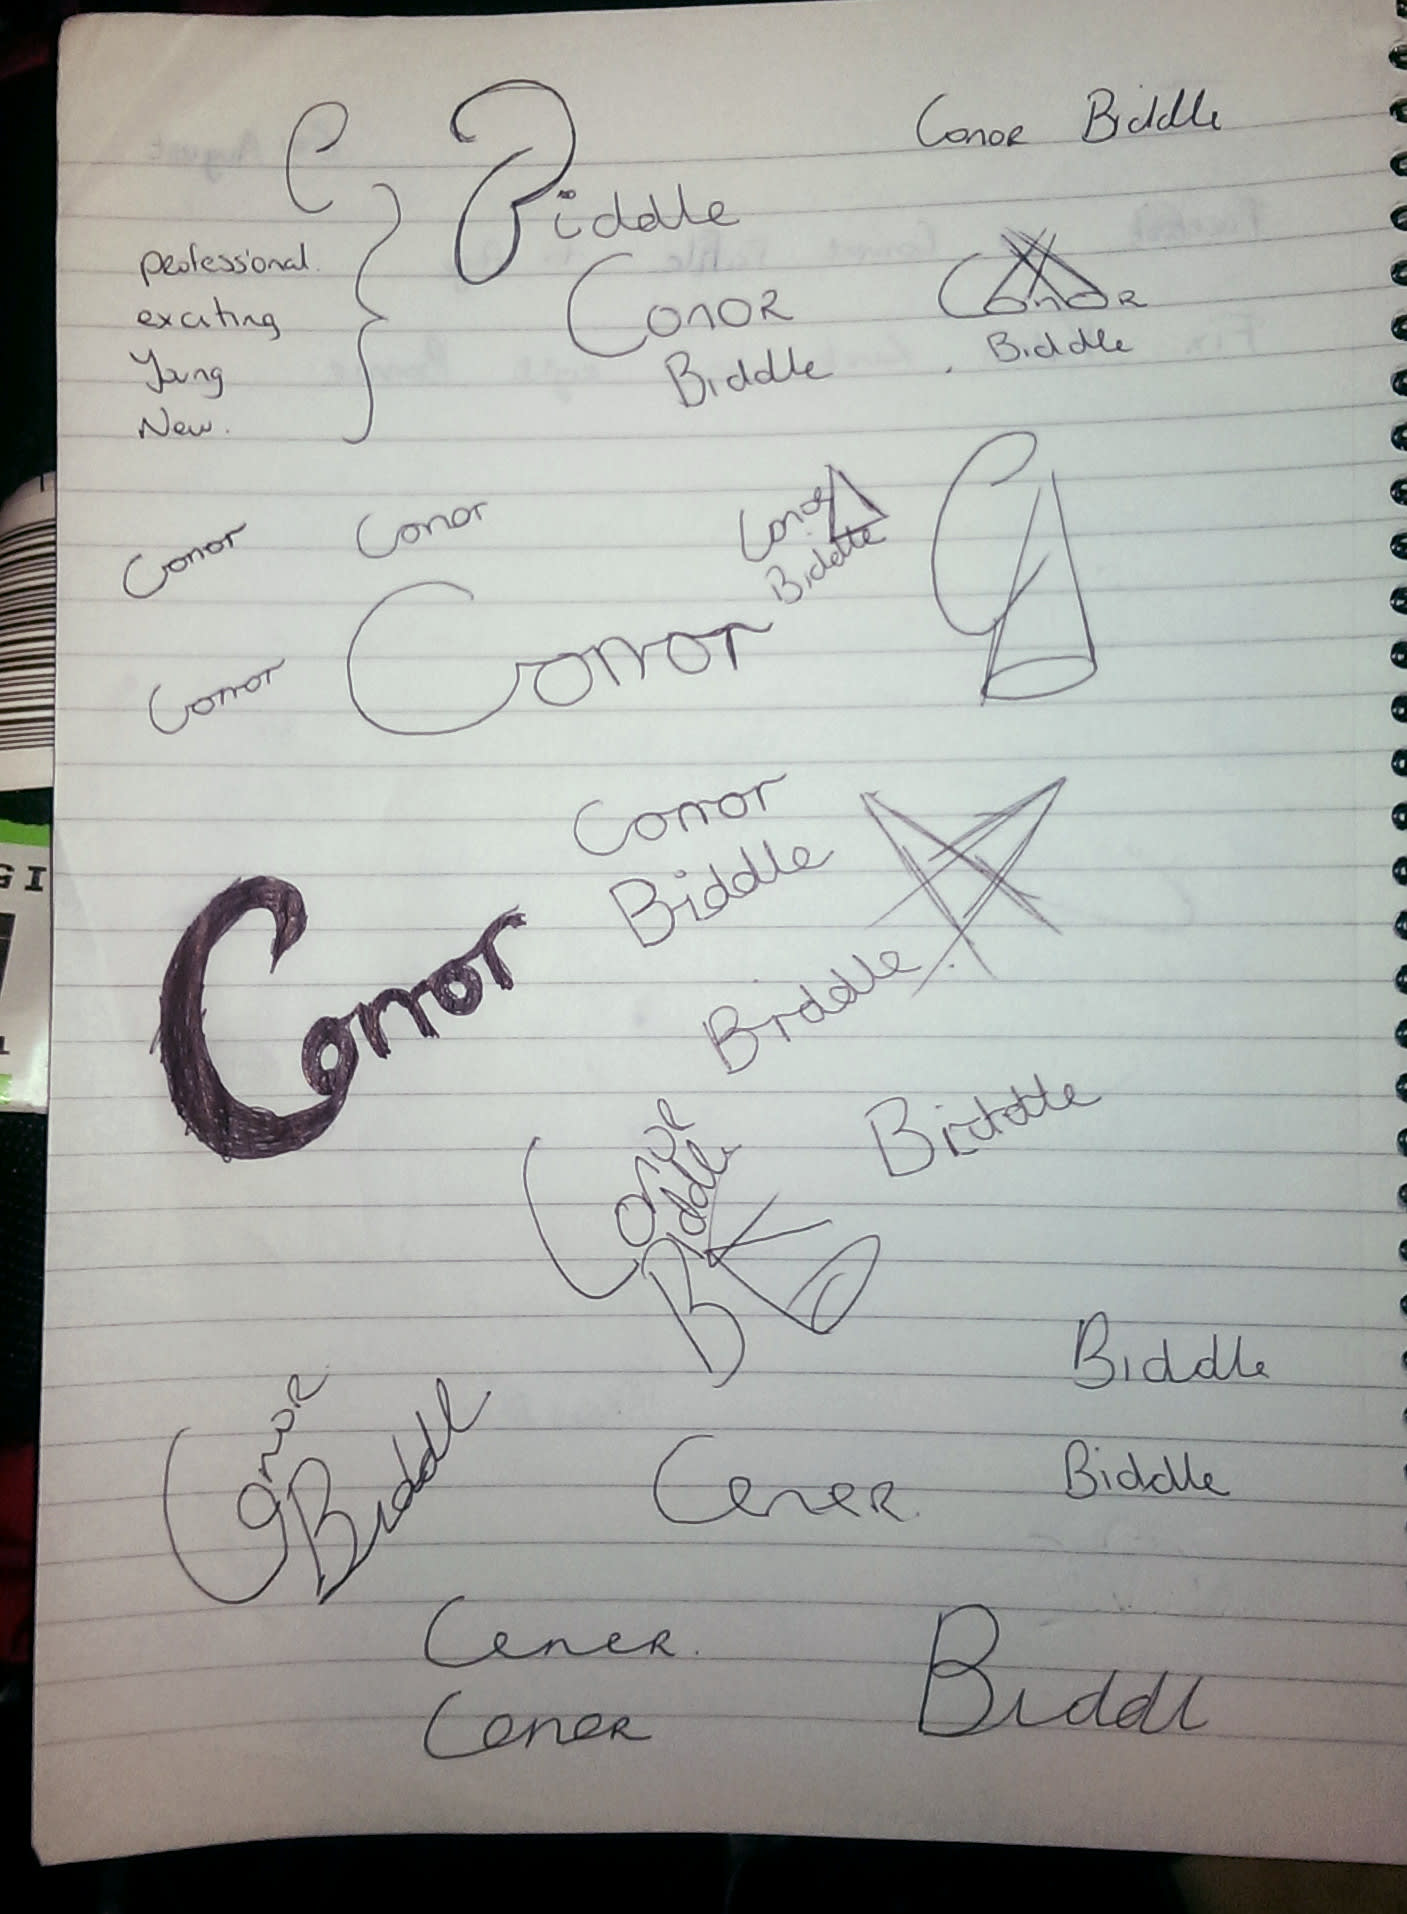 C
Biddle
Conor Biddle
professional.
exciting
Young
New.
Conor
Biddle
Conor
Biddle
Conor
Conor
Conor
Biddle
C
Conor
Conor
Conor
Biddle
Conor
Biddle
Biddle
Conor
Biddle
Biddle
Conor
Biddle
Conor
Biddle
Conor.
Biddl
Conor
GI